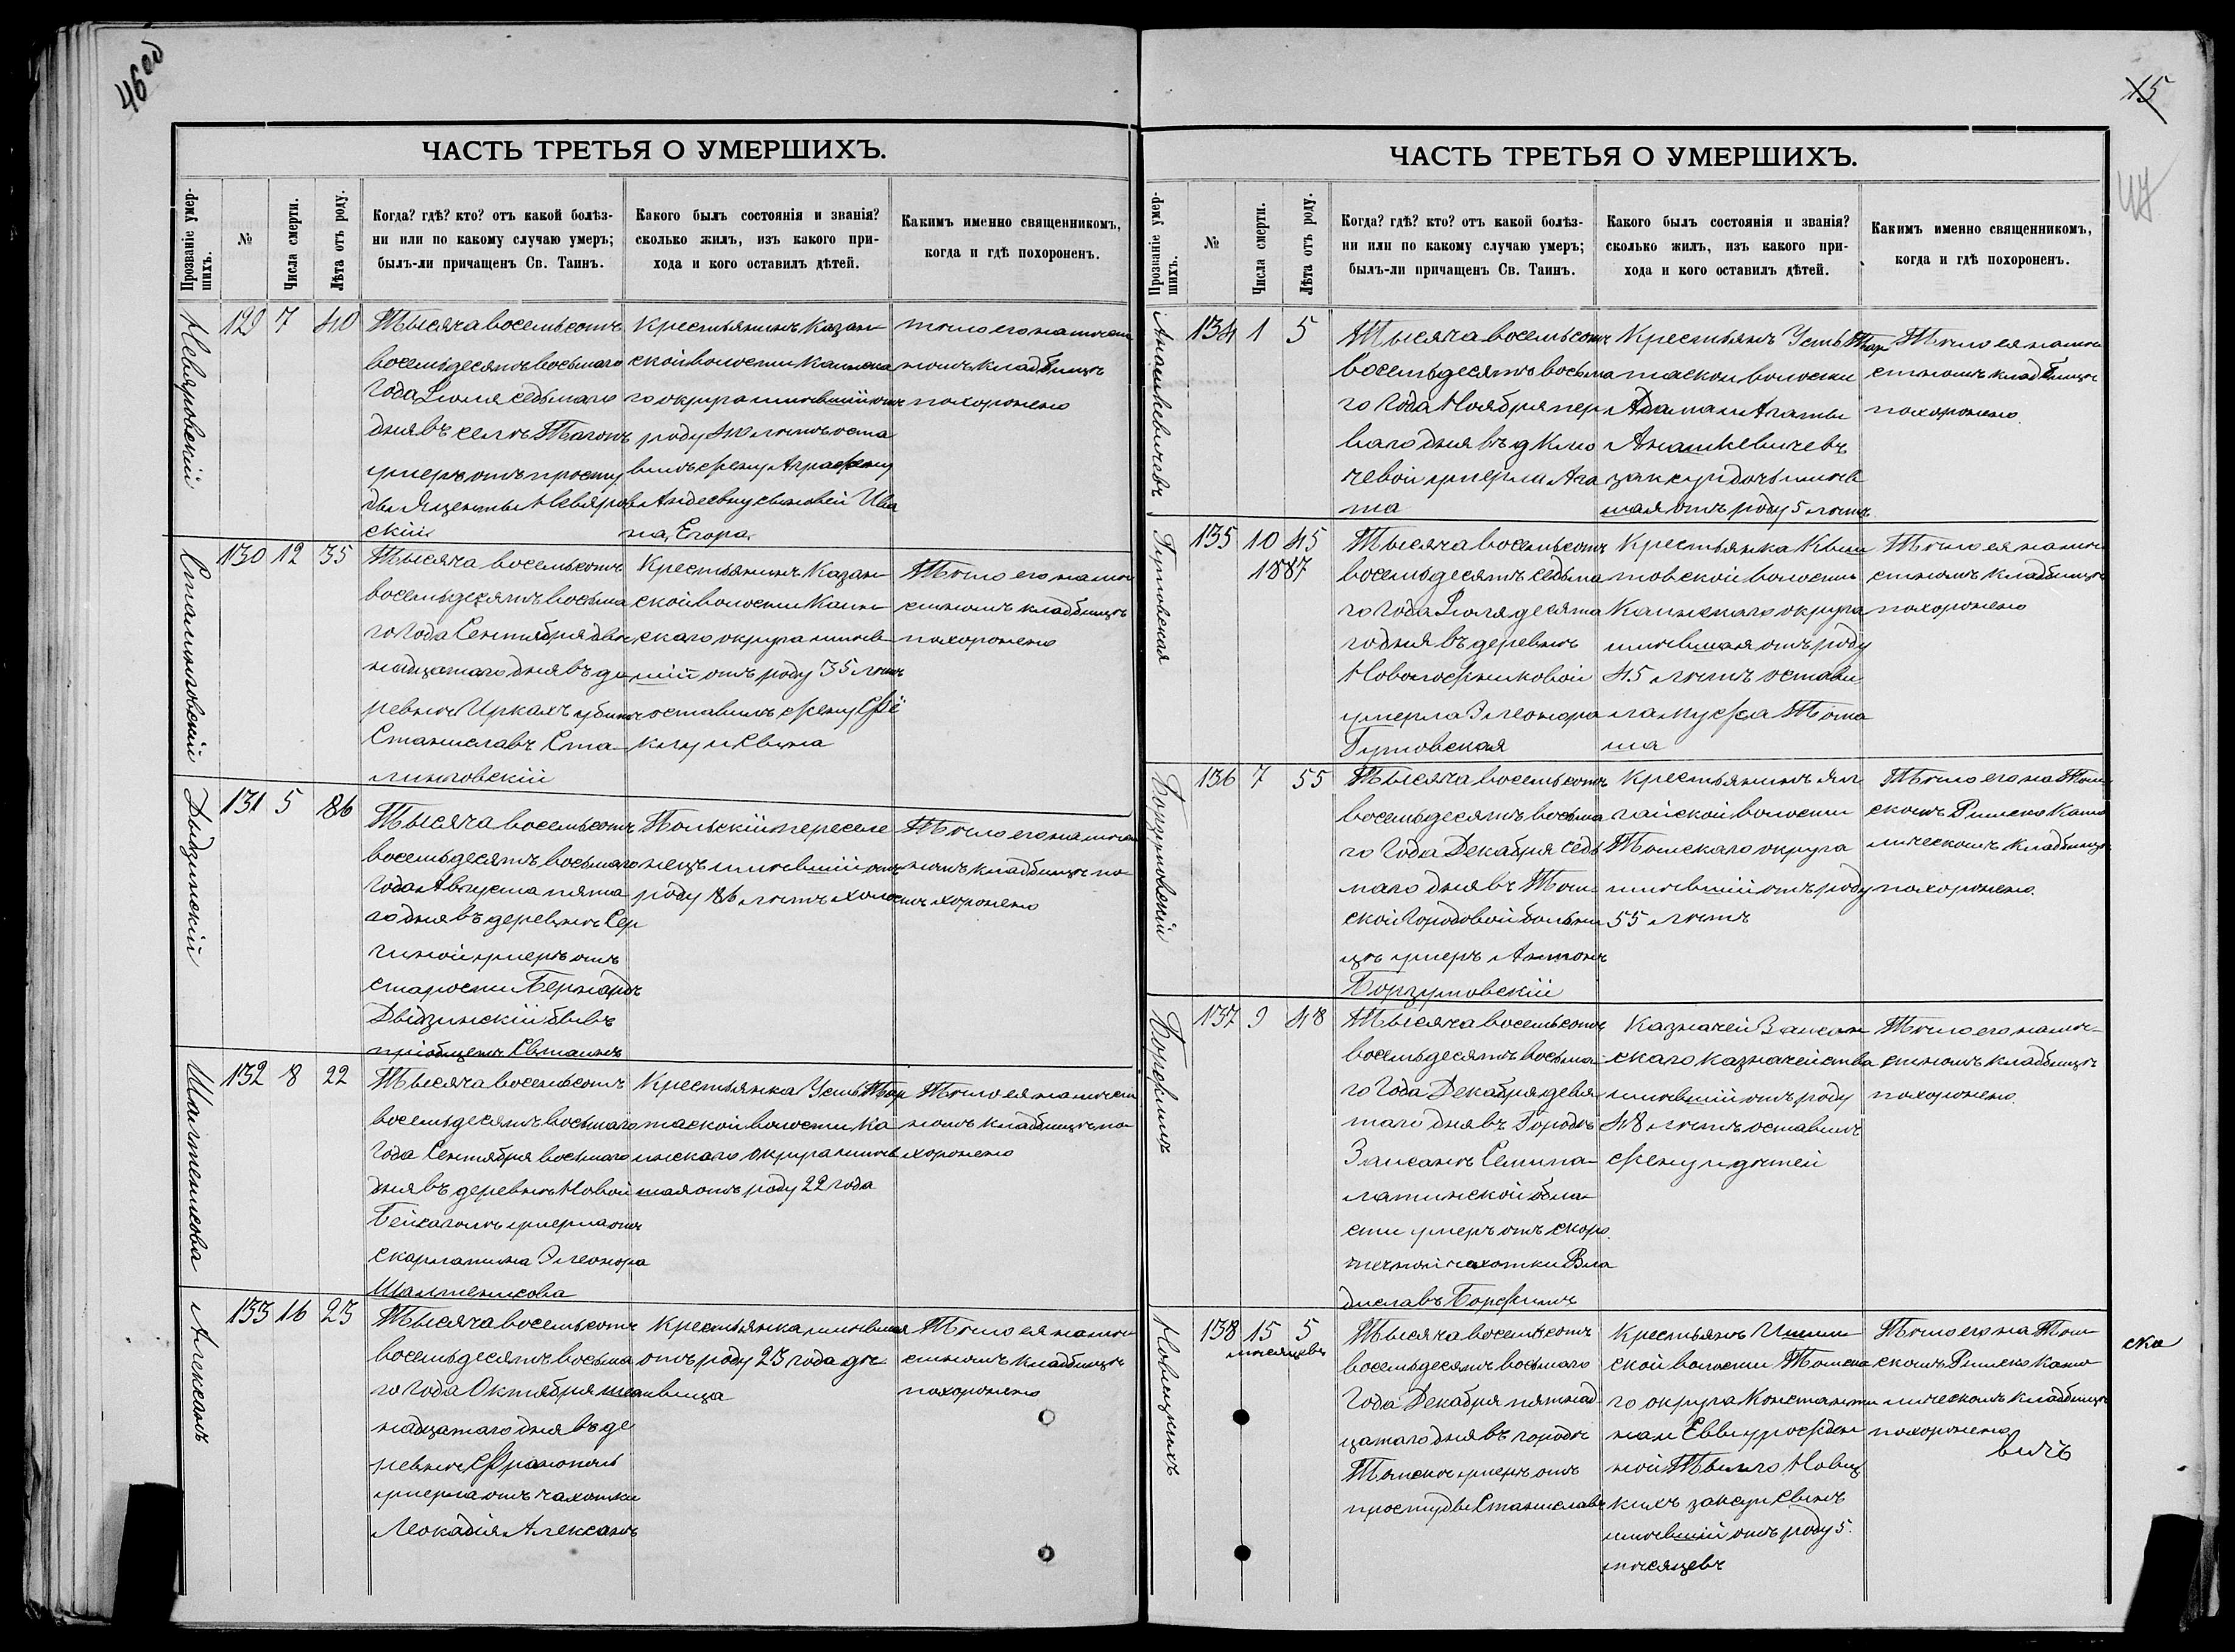 46 об
ЧАСТЬ ТРЕТЬЯ О УМЕРШИХЪ.
Прозваніе умер-
шихъ.
№
Числа смерти.
Лѣта отъ роду.
Когда? гдѣ? кто? отъ какой болѣз-
ни или по какому случаю умеръ;
былъ-ли причащенъ Св. Таинъ.
Какого былъ состоянія и званія?
сколько жилъ, изъ какого при-
хода и кого оставилъ дѣтей.
Каким­ъ именно священникомъ,
когда и гдѣ похороненъ.
Невяровскій
129 7 40
Тысяча восемьсотъ
восемьдесятъ восьмаго
года Іюля седьмаго
дня въ селѣ
умеръ отъ просту
ды Яцентъ Невяров
скій
Крестьянинъ Казан
ской волости Каинска
го округа имѣвшій отъ
роду 40 лѣтъ оста
вилъ жену Аграфену
сыновей Ива
на, Егора
Тѣло его на мѣст
номъ кладбищѣ
похоронено
130 12 35
Тысяча восемьсотъ
восемьдесятъ восьма
го года Сентября двѣ
надцатаго дня въ де
ревнѣ Иркахъ убитъ
Станиславъ Ста
линговскій
Крестьянинъ Казан
ской волости Каин
скаго округа имѣв
шій отъ роду 35 лѣтъ
оставилъ жену Фе
клу и сына
Тѣло его на мѣ
стномъ кладбищѣ
похоронено
131 5 86
Тысяча восемьсотъ
восемьдесятъ восьмаго
года Августа пята
го дня въ деревнѣ Сер
гиной умеръ отъ
старости Бернардъ
Двідзинскій бывъ
пріобщенъ Св. таинъ
Польскій переселе
нецъ имѣвшій отъ
роду 86 лѣтъ холостъ
Тѣло его на мѣст
номъ кладбищѣ по
хоронено
Шалтенисова
132 8 22
Тысяча восемьсотъ
восемьдесятъ восьмаго
года Сентября восьмаго
дня въ деревнѣ Новой
умерла отъ
скарлатина Элеонора
Шалтенисова
Крестьянка Усть Тар
таской волости Ка
инскаго округа имѣв
шая отъ роду 22 года
Тѣло ея на мѣст
номъ кладбищѣ по
хоронено
Алексанъ
133 16 23
Тысяча восемьсотъ
восемьдесятъ восьма
го года Октября шест
надцатаго дня въ де
ревнѣ
умерла отъ чахотки
Леокадія Алексанъ
Крестьянка имѣвшая
отъ роду 23 года дѣ
вица
Тѣло ея на мѣ
стномъ кладбищѣ
похоронено
45
47
ЧАСТЬ ТРЕТЬЯ О УМЕРШИХЪ.
Прозваніе умер-
шихъ.
№
Числа смерти.
Лѣта отъ роду.
Когда? гдѣ? кто? отъ какой болѣз-
ни или по какому случаю умеръ;
былъ-ли причащенъ Св. Таинъ.
Какого былъ состоянія и званія?
сколько жилъ, изъ какого при-
хода и кого оставилъ дѣтей.
Какимъ именно священникомъ,
когда и гдѣ похороненъ.
Анашкевичевъ
134 1 5
Тысяча восемьсотъ
восемьдесятъ восьма
го года Ноября пер
ваго дня въ д Клю
чевой умерла Ага
та
Крестьянъ Усть Тар
таской волости
Адама и Агаты
Анашкевичевъ
закон дочь имѣв
шая отъ роду 5 лѣтъ
Тѣло ея на мѣ
стномъ кладбищѣ
похоронено
Гутовская
135 10 45
1887
Тысяча восемьсотъ
восемьдесятъ седьма
го года Іюля десята
го дня въ деревнѣ
умерла Элеонора
Гутовская
Крестьянка Кыш
товской волости
Каинскаго округа
имѣвшая отъ роду
45 лѣтъ остави
ла мужа Тома
ша
Тѣло ея на мѣ
стномъ кладбищѣ
похоронено
Борзумовскій
136 7 55
Тысяча восемьсотъ
восемьдесятъ восьма
го года Декабря седь
маго дня въ Том
ской Городовой больни
цѣ умеръ Антонъ
Борзумовскій
Крестьянинъ Ял
гайской волости
Томскаго округа
имѣвшій отъ роду
55 лѣтъ
Тѣло его на Том
скомъ Римско Като
лическомъ кладбищѣ
похоронено.
Боржимъ
137 9 48
Тысяча восемьсотъ
восемьдесятъ восьма
го года Декабря девя
таго дня въ городѣ
Зайсанѣ Семипа
латинской обла
сти умеръ отъ скоро
течной чахотки Вла
диславъ Боржимъ
Казначей Зайсан
скаго казначейства
имѣвшій отъ роду
48 лѣтъ оставилъ
жену и дѣтей
Тѣло его на мѣ
стномъ кладбищѣ
похоронено.
Новицкихъ
138 15 5
мѣсяцевъ
Тысяча восемьсотъ
восемьдесятъ восьмаго
года Декабря пятнад
цатаго дня въ городѣ
Томскѣ умеръ отъ
простуды Станиславъ
Крестьянъ Ишим
ской волости Томска
го округа Константи
на и Евы урожден
ной Новиц
кихъ закон сынъ
имѣвшій отъ роду 5
мѣсяцевъ
Тѣло его на Том
скомъ Римско Като
лическомъ кладбищѣ
похоронено
вичъ
ска